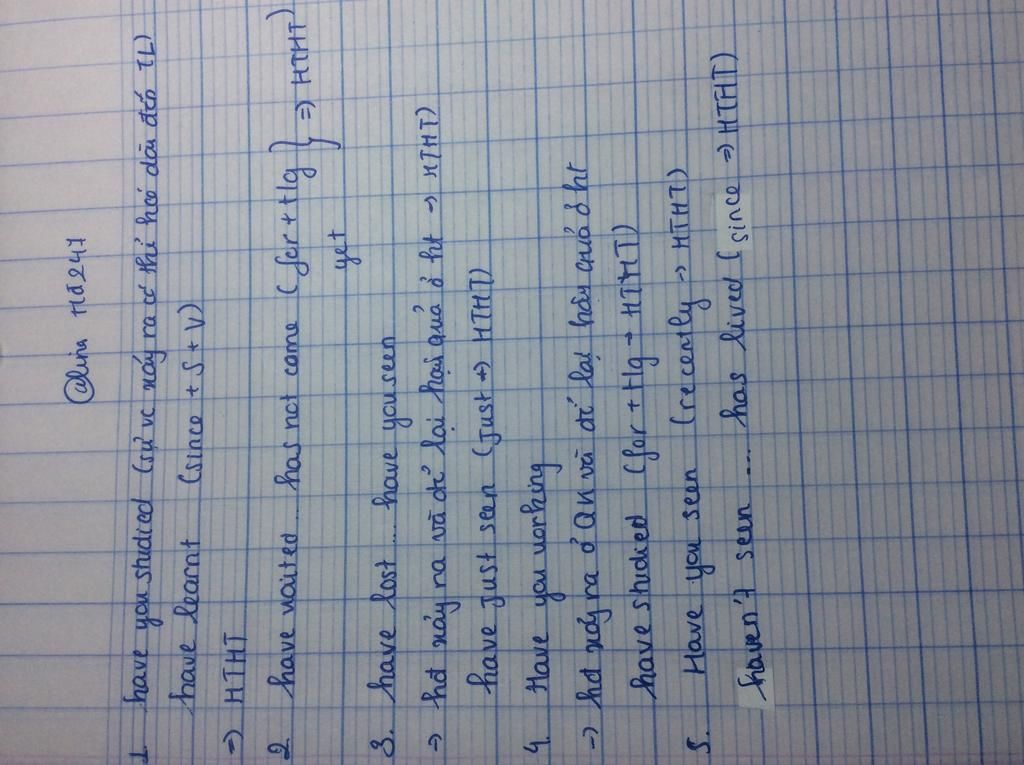 @lina Hđ247
1. have you studied (sự vc xảy ra có thể kéo dài đến TL)
have learnt (since + S + V)
=> HTHT
2 have waited ... has not come (for + tg } => HTHT)
yet
3. have lost .... have you seen
-> hđ xảy ra và để lại hậu quả ở ht -> HTHT)
have just seen (just => HTHT)
4. Have you working
-> hđ xảy ra ở QK và để lại hậu quả ở ht
have studied (for + tg -> HTHT)
5. Have you seen (recently -> HTHT)
haven't seen .... has lived (since => HTHT)